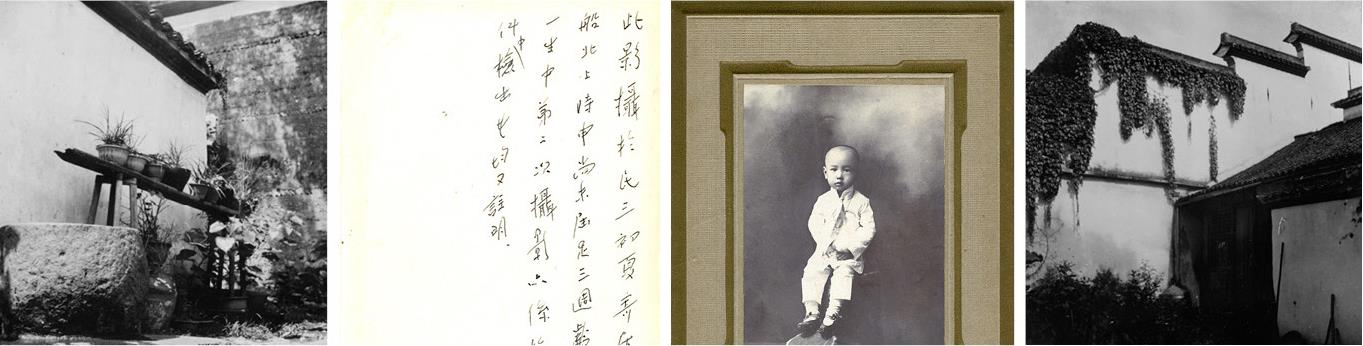 此影攝於民三初夏
船北上時中尚未屆足三週歲
一生中第二次攝影亦係
件中檢出也均又註明.